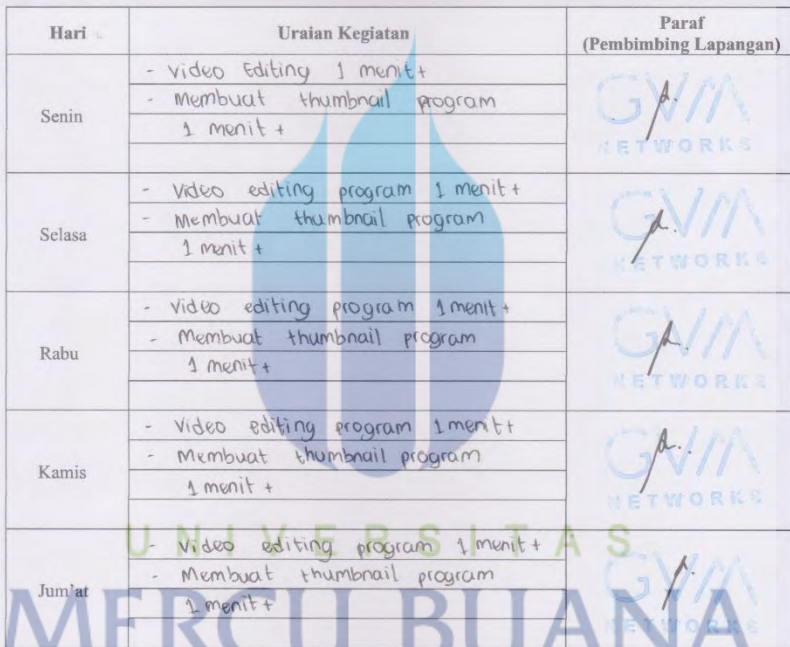 Hari Uraian Kegiatan Paraf
(Pembimbing Lapangan)
Senin
- Video Editing 1 menit+
- Membuat thumbnail program
1 menit +
GVM
NETWORKS
Selasa
- Video editing program 1 menit+
- Membuat thumbnail program
1 menit +
GVM
NETWORKS
Rabu
- Video editing program 1 menit+
- Membuat thumbnail program
1 menit +
GVM
NETWORKS
Kamis
- Video editing program 1 menit+
- Membuat thumbnail program
1 menit +
GVM
NETWORKS
Jum'at
- Video editing program 1 menit+
- Membuat thumbnail program
1 menit +
GVM
NETWORKS
UNIVERSITAS
MERCU BUANA